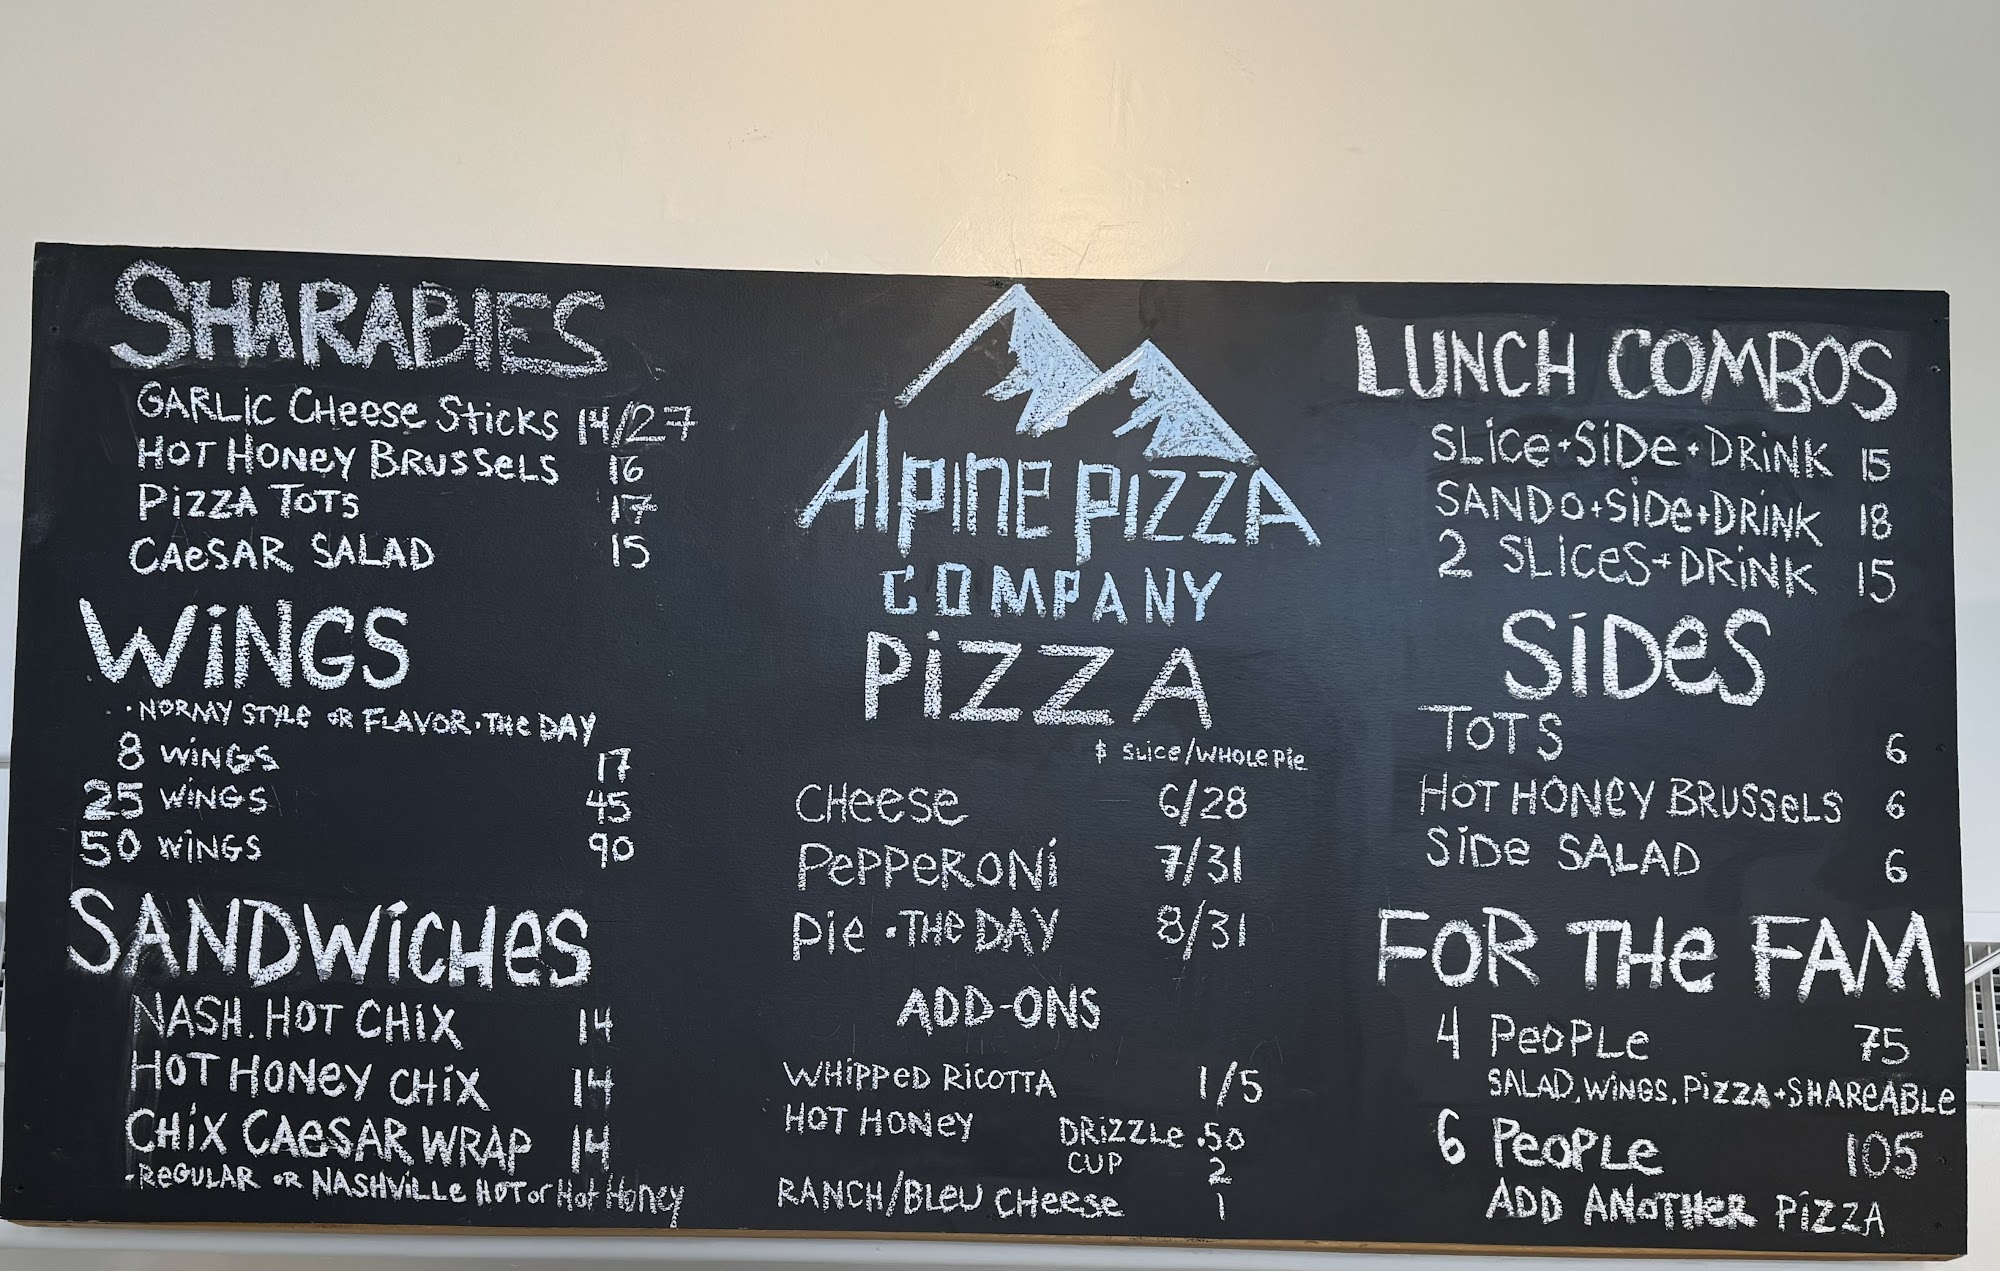 SHARABIES
GARLIC CHeese Sticks 14/27
HOT HONEY BRUSSeLS 16
PiZZA TOTS 17
CAeSAR SALAD 15
WiNGS
·NORMY STYLe OR FLAVOR·THe DAY
8 WiNGS 17
25 WiNGS 45
50 WiNGS 90
SANDWiCHeS
NASH. HOT CHiX 14
HOT HONEY CHiX 14
CHiX CAeSAR WRAP 14
·ReGULAR OR NASHViLLe HOT or Hot Honey
Alpine pizza
COMPANY
PiZZA
$ SLiCe/WHOLe Pie
CHeese 6/28
PePPeRONi 7/31
Pie·THe DAY 8/31
ADD-ONS
WHiPPeD RiCOTTA 1/5
HOT HONeY DRiZZLe .50
CUP 2
RANCH/BLeU CHeese 1
LUNCH COMBOS
SLiCe+SiDe+DRiNK 15
SANDO+SiDe+DRiNK 18
2 SLiCeS+DRiNK 15
SiDeS
TOTS 6
HOT HONeY BRUSSeLS 6
SiDe SALAD 6
FOR THe FAM
4 PeOPLe 75
SALAD, WiNGS, PiZZA+SHAReABLe
6 PeOPLe 105
ADD ANOTHeR PiZZA